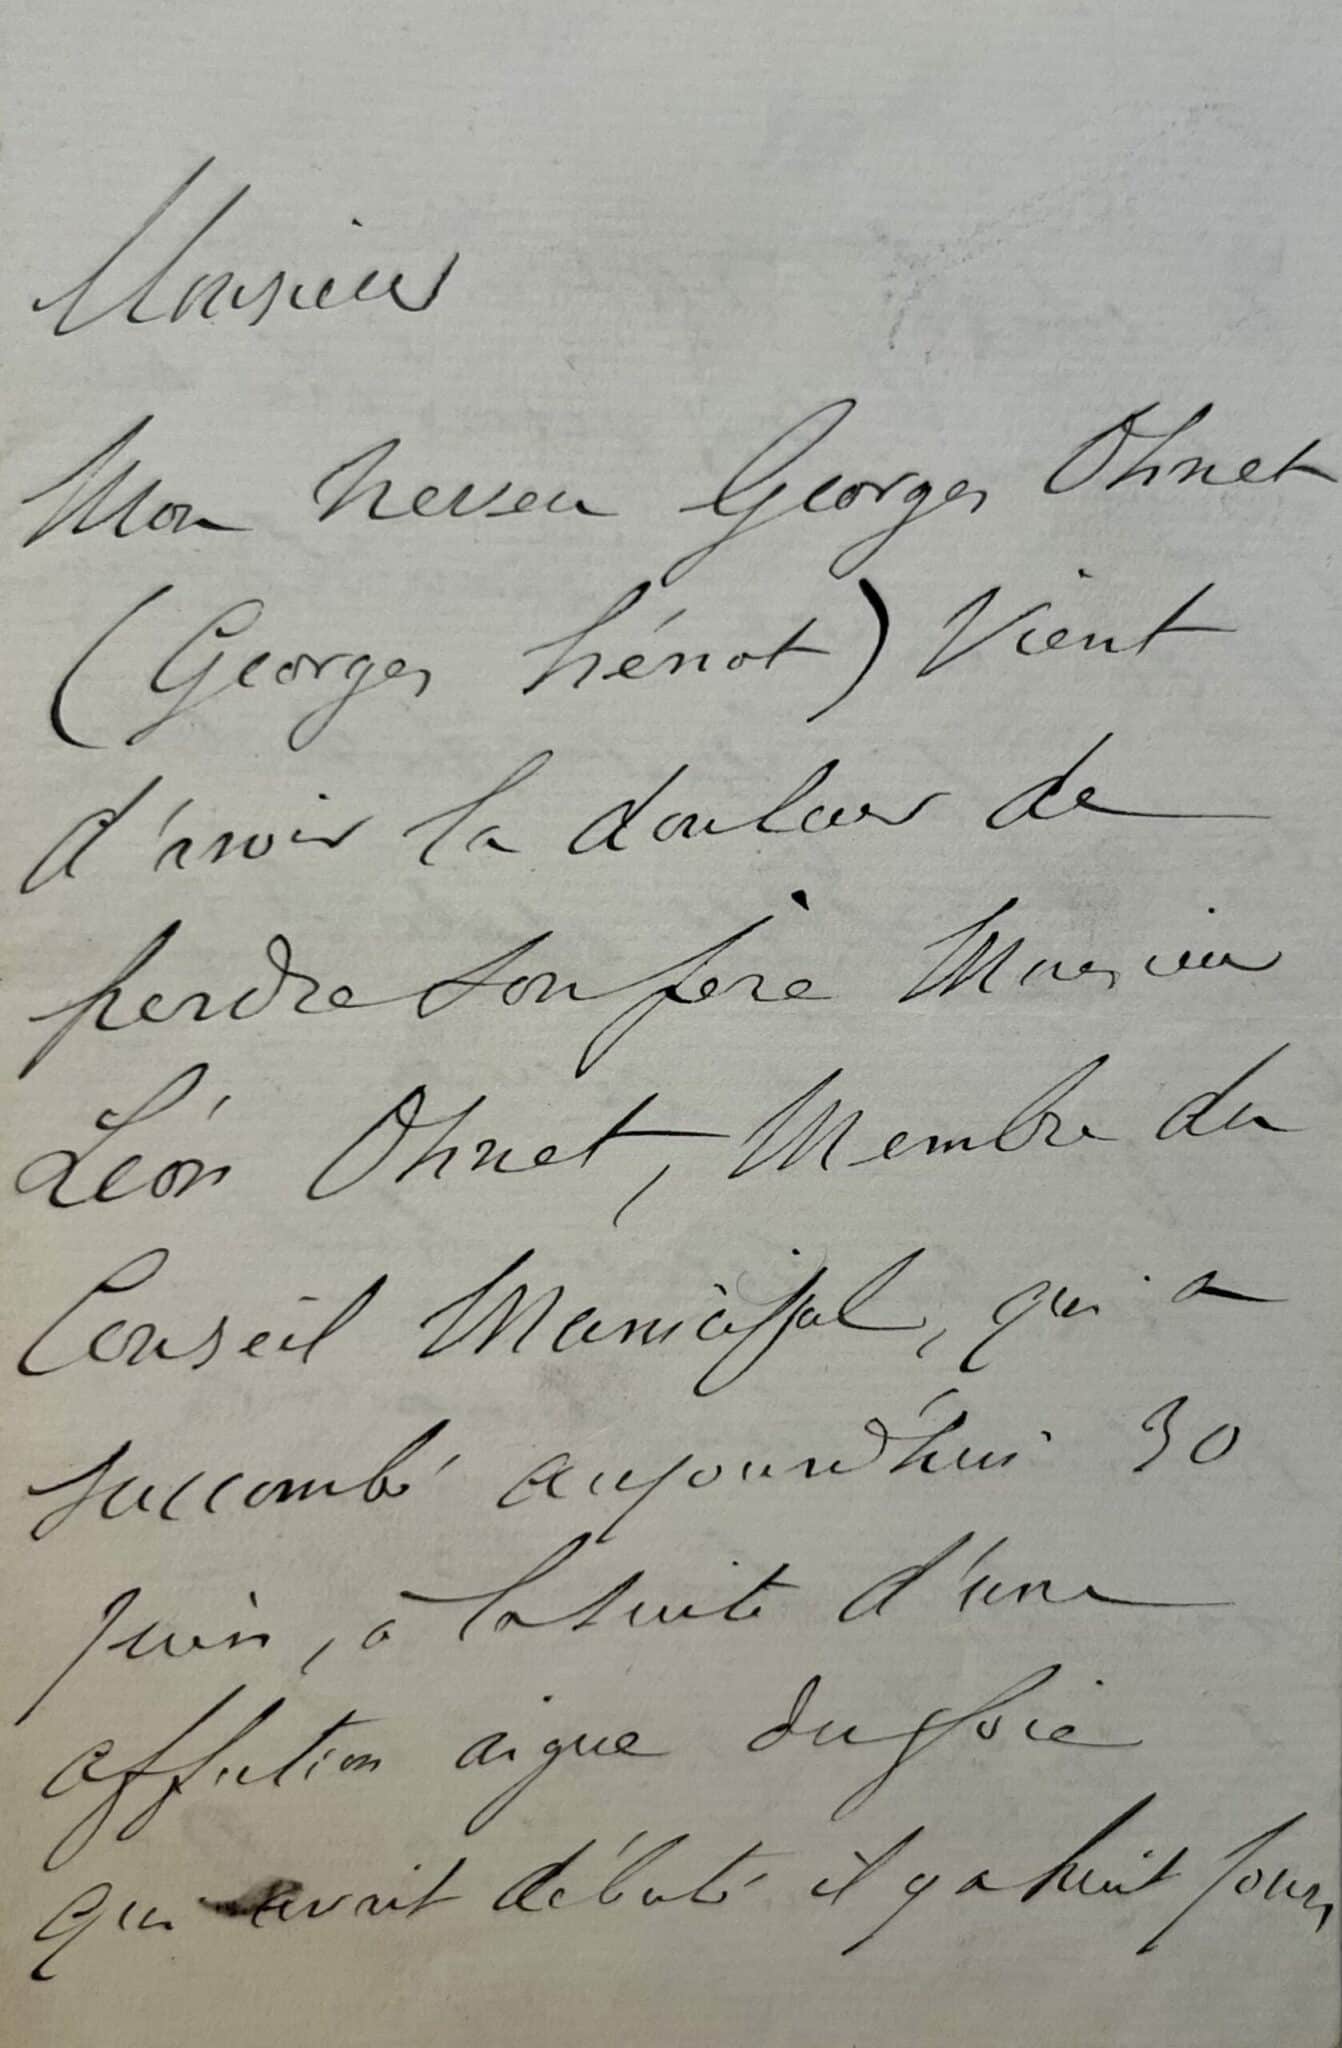 Monsieur
Mon neveu Georges Ohnet
(Georges hénot) Vient
d'avoir la douleur de
perdre son père Monsieur
Léon Ohnet, Membre du
Conseil Municipal, qui a
succombé aujourd'hui 30
Juin, à la suite d'une
affection aigue du foie
qui avait débuté il y a huit jours